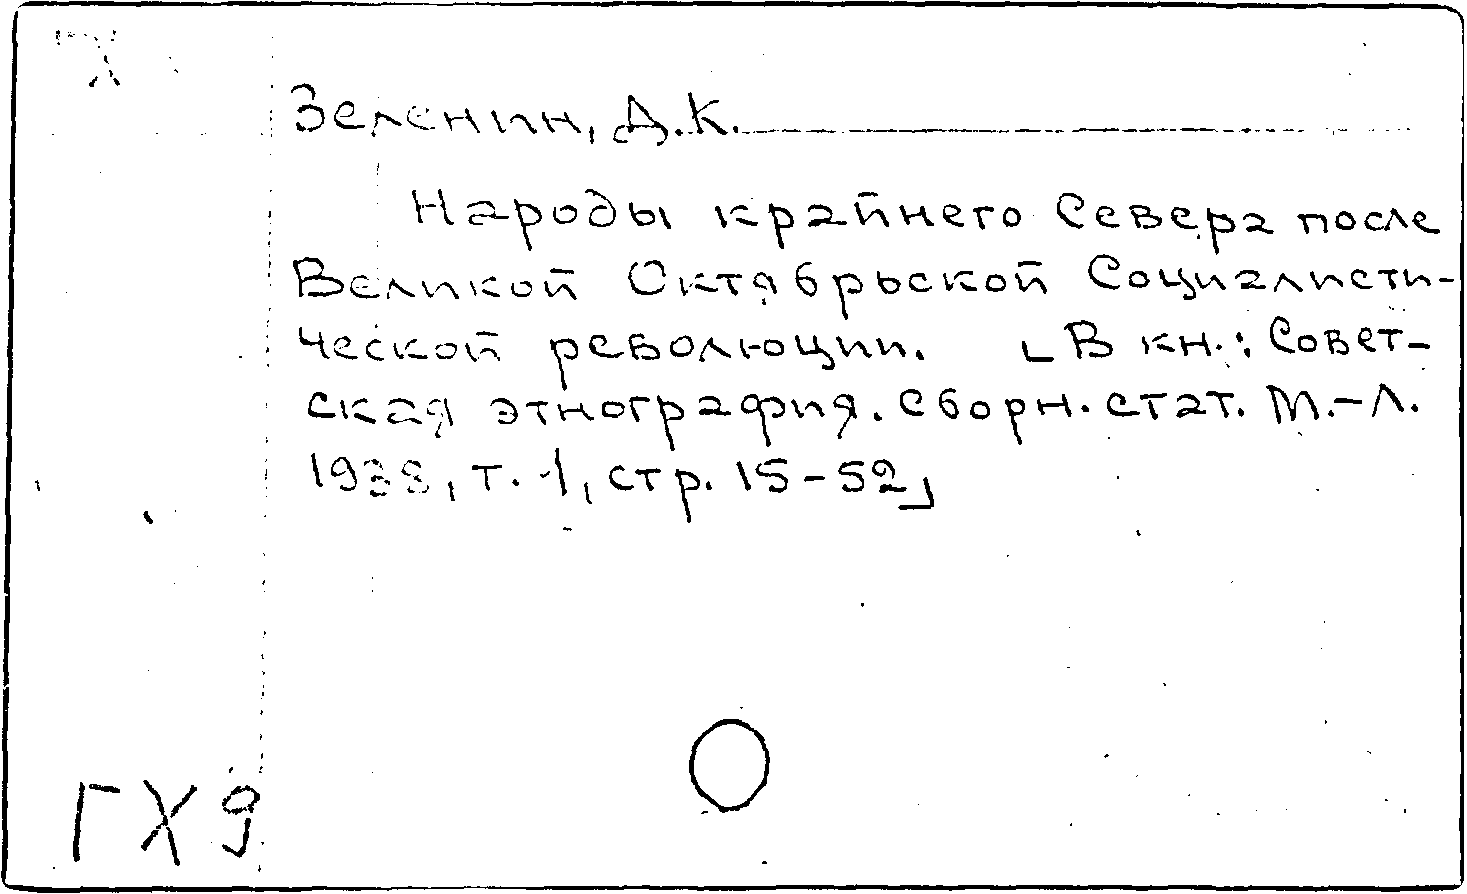 Зеленин, Д.К.
Народы крайнего Севера после
Великой Октябрьской Социалисти-
ческой революции. [В кн.: Совет-
ская этнография. Сборн. стат. М.-Л.
1938, т. 1, стр. 15-52]
ГХ9